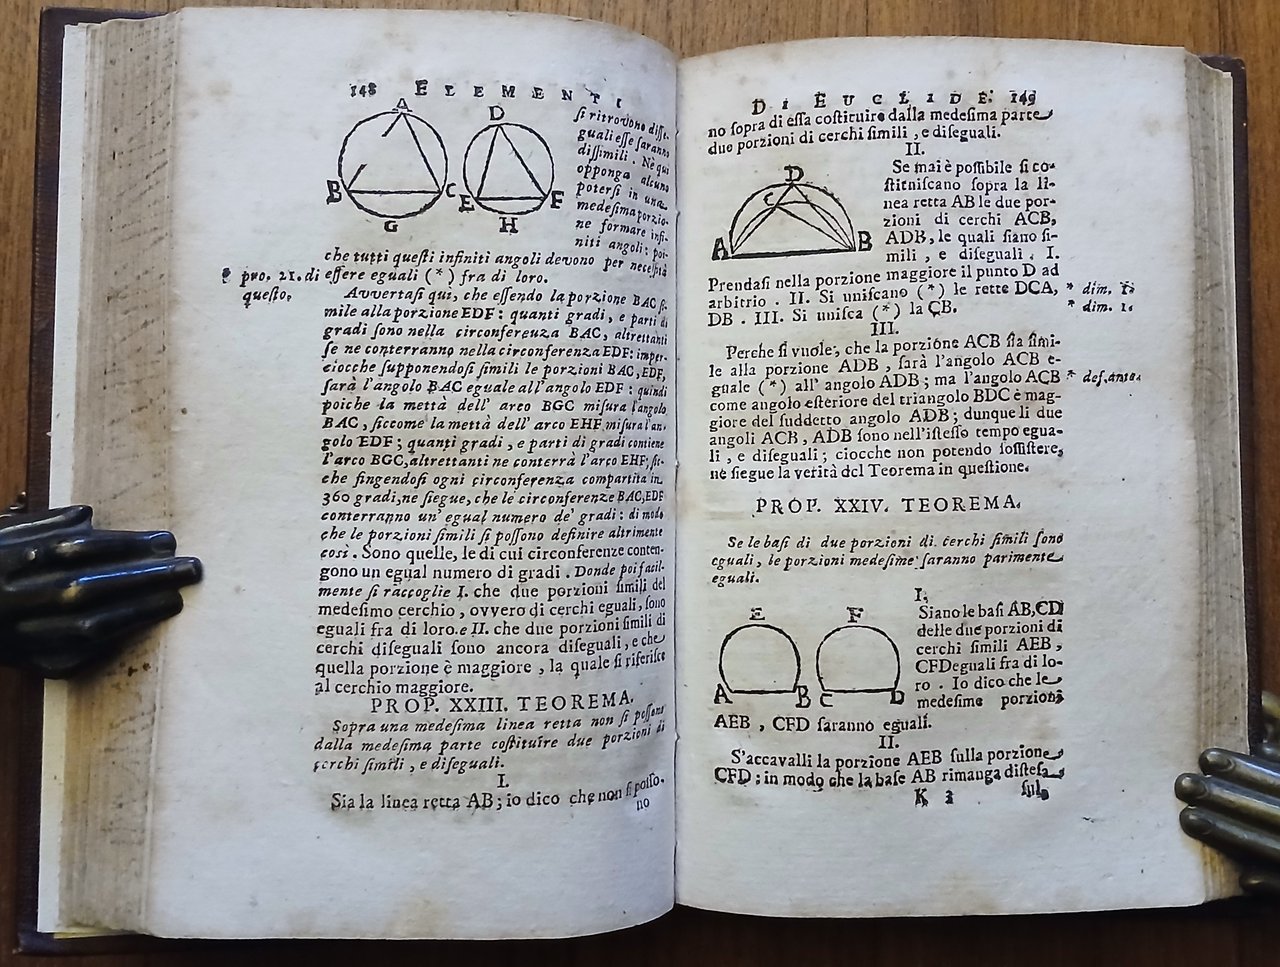 148 ELEMENTI
A
B
C
G
D
E
F
H
si ritrovono dise-
guali esse saranno
dissimili. Nè qui
opponga alcuno
potersi in una
medesima porzio-
ne formare infi-
niti angoli: poi-
che tutti questi infiniti angoli devono per necessità
* pro. 21. di
questo.
essere eguali (*) fra di loro.
Avvertasi qui, che essendo la porzione BAC si-
mile alla porzione EDF: quanti gradi, e parti di
gradi sono nella circonferenza BAC, altrettanti
se ne conterranno nella circonferenza EDF: imper-
ciocche supponendosi simili le porzioni BAC, EDF,
sarà l'angolo BAC eguale all'angolo EDF: quindi
poiche la mettà dell' arco BGC misura l'angolo
BAC, siccome la mettà dell' arco EHF misura l'an-
golo EDF; quanti gradi, e parti di gradi contiene
l'arco BGC, altrettanti ne conterrà l'arco EHF; sic-
che fingendosi ogni circonferenza compartita in
360 gradi, ne siegue, che le circonferenze BAC, EDF
conterranno un' egual numero de' gradi: di modo
che le porzioni simili si possono definire altrimente
così. Sono quelle, le di cui circonferenze conten-
gono un egual numero di gradi. Donde poi facil-
mente si raccoglie I. che due porzioni simili del
medesimo cerchio, ovvero di cerchi eguali, sono
eguali fra di loro. e II. che due porzioni simili di
cerchi diseguali sono ancora diseguali, e che
quella porzione è maggiore, la quale si riferisce
al cerchio maggiore.
PROP. XXIII. TEOREMA.
Sopra una medesima linea retta non si possono
dalla medesima parte costituire due porzioni di
cerchi simili, e diseguali.
I.
Sia la linea retta AB; io dico che non si posso-
no
DI EUCLIDE. 149
no sopra di essa costituire dalla medesima parte
due porzioni di cerchi simili, e diseguali.
II.
D
C
A
B
Se mai è possibile si co-
stituiscano sopra la li-
nea retta AB le due por-
zioni di cerchi ACB,
ADB, le quali siano si-
mili, e diseguali. I.
Prendasi nella porzione maggiore il punto D ad
arbitrio. II. Si uniscano (*) le rette DCA,
* dim. 1.
DB. III. Si unisca (*) la CB.
* dim. 1.
III.
Perche si vuole, che la porzione ACB sia simi-
le alla porzione ADB, sarà l'angolo ACB e-
guale (*) all' angolo ADB; ma l'angolo ACB
* def. ante.
come angolo esteriore del triangolo BDC è mag-
giore del suddetto angolo ADB; dunque li due
angoli ACB, ADB sono nell'istesso tempo egua-
li, e diseguali; ciocche non potendo sossistere,
ne siegue la verità del Teorema in questione.
PROP. XXIV. TEOREMA.
Se le basi di due porzioni di cerchi simili sono
eguali, le porzioni medesime saranno parimente
eguali.
I.
E
F
A
B
C
D
Siano le basi AB, CD
delle due porzioni di
cerchi simili AEB,
CFD eguali fra di lo-
ro. Io dico che le
medesime porzioni
AEB, CFD saranno eguali.
II.
S'accavalli la porzione AEB sulla porzione
CFD; in modo che la base AB rimanga distesa
K 3
sul-